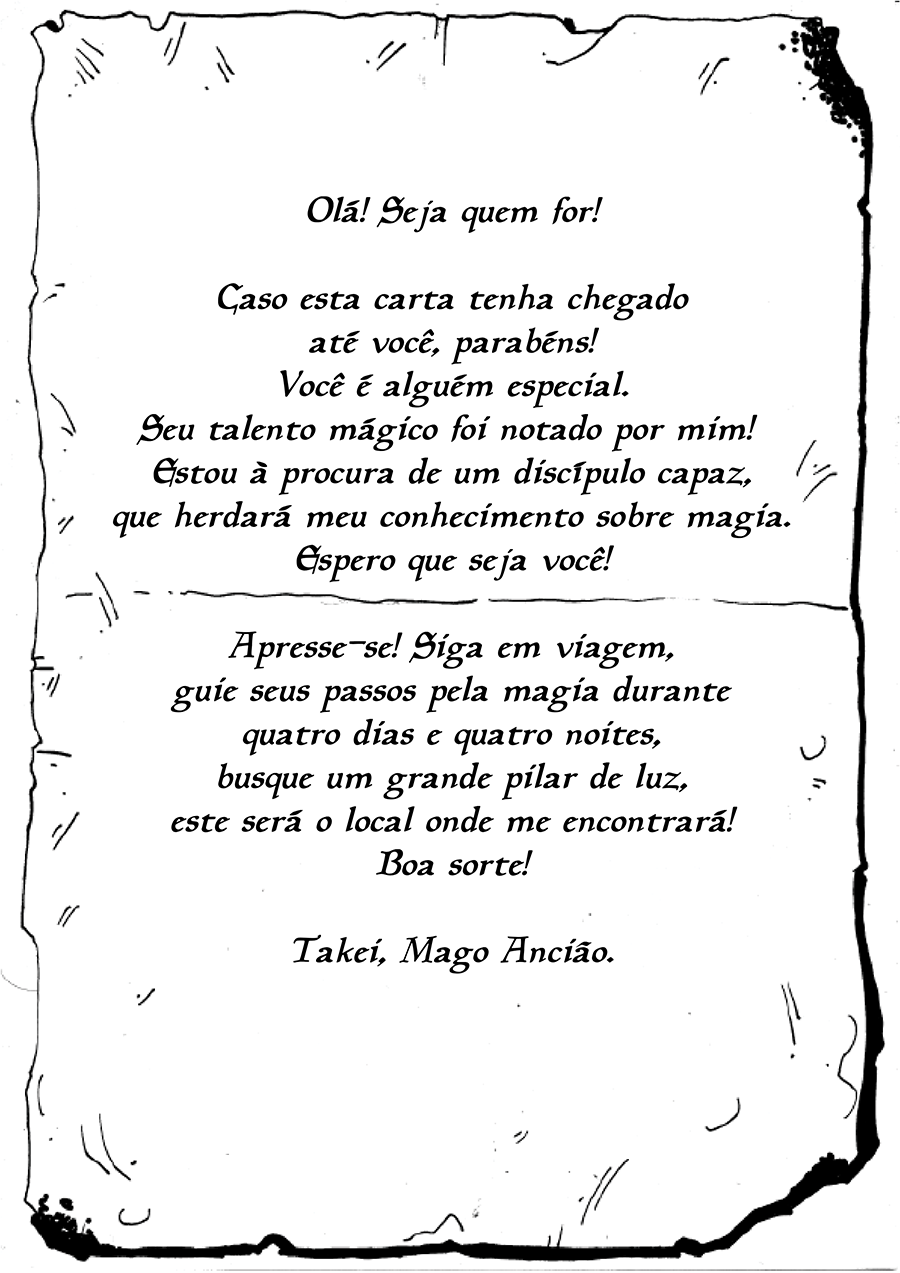 Olá! Seja quem for!
Caso esta carta tenha chegado
até você, parabéns!
Você é alguém especial.
Seu talento mágico foi notado por mim!
Estou à procura de um discípulo capaz,
que herdará meu conhecimento sobre magia.
Espero que seja você!
Apresse-se! Siga em viagem,
guie seus passos pela magia durante
quatro dias e quatro noites,
busque um grande pilar de luz,
este será o local onde me encontrará!
Boa sorte!
Takei, Mago Ancião.